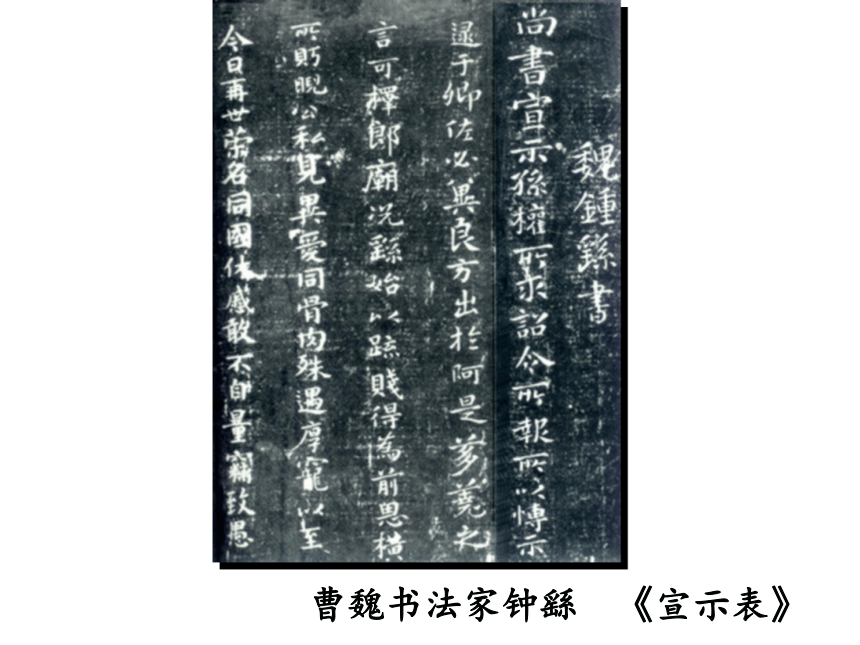 魏鍾繇書
尚書宣示孫權所求詔令所報所以博示
逮于卿佐必冀良方出於阿是芻蕘之
言可擇郎廟況繇始以疏賤得為前恩橫
所眄睨公私見異愛同骨肉殊遇厚寵以至
今日再世榮名同國休慼敢不自量竊致愚
曹魏书法家钟繇 《宣示表》